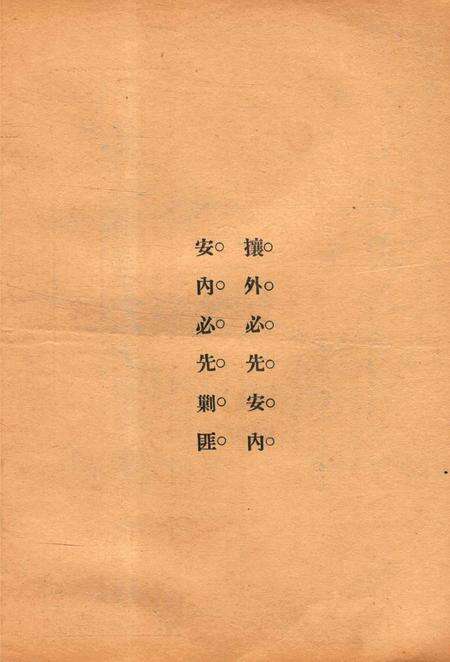 攘○外○必○先○安○內○
安○內○必○先○剿○匪○